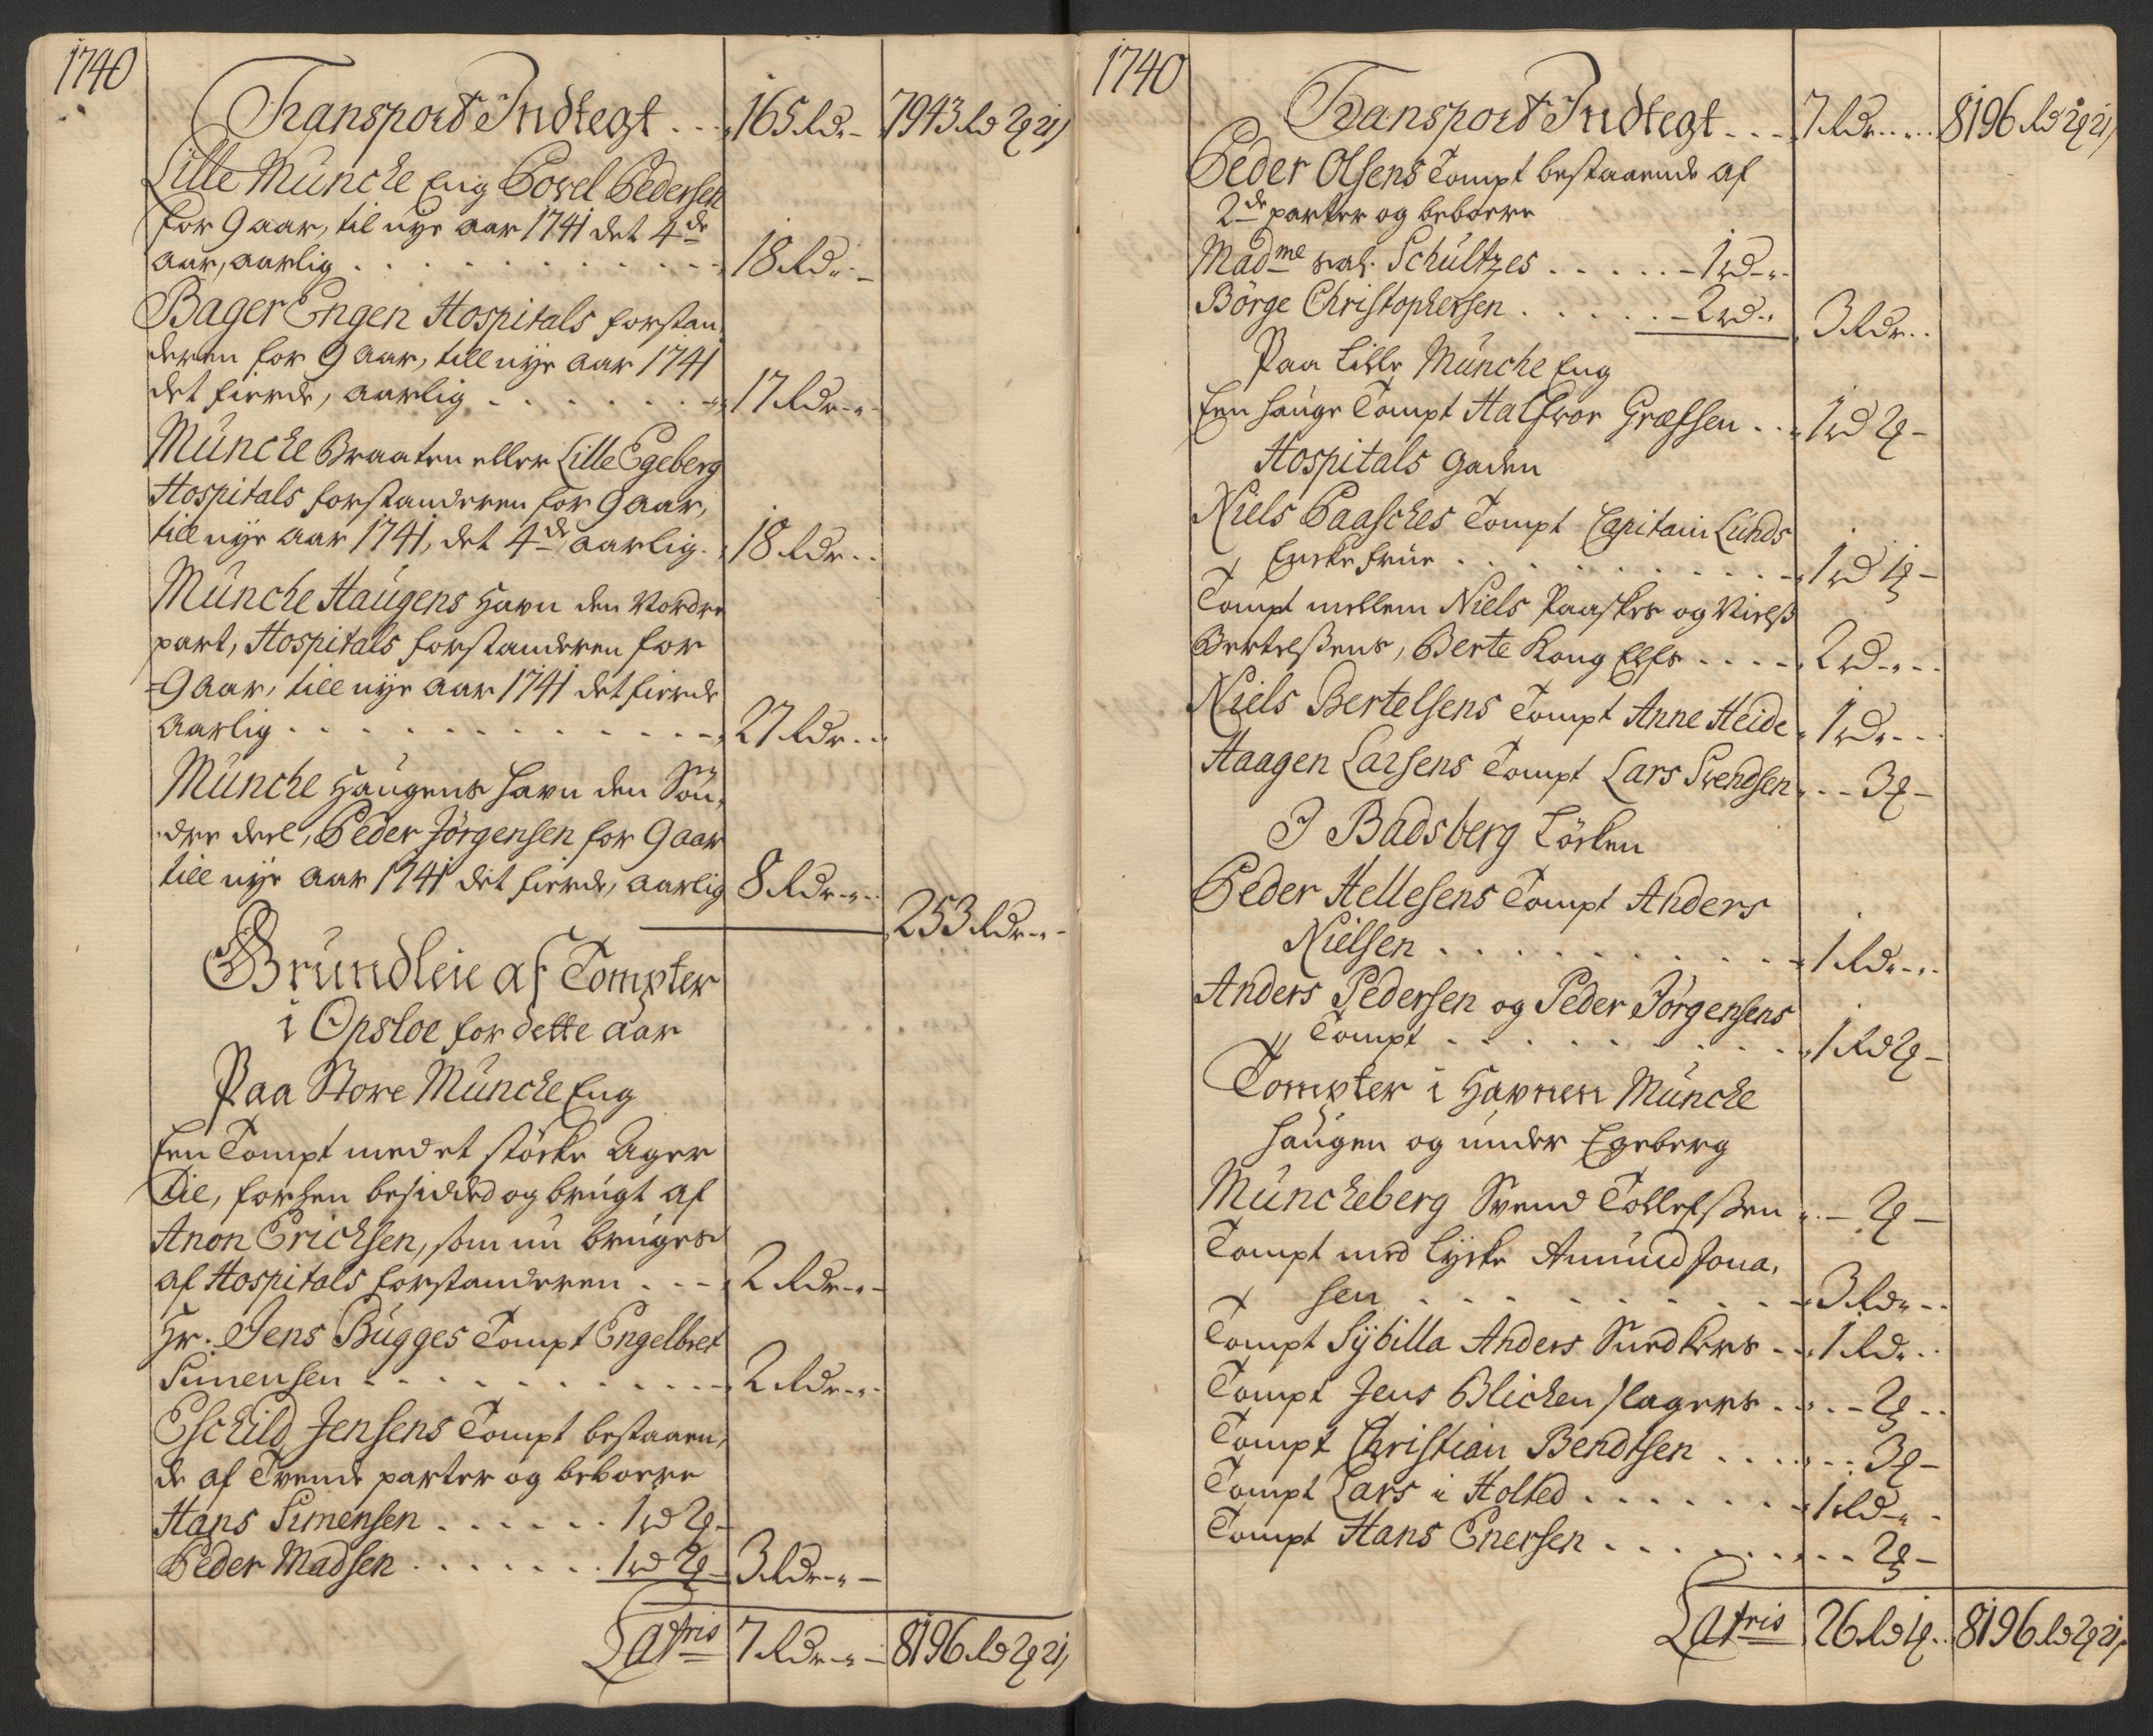 1740
Transport Indtegt . . . 165 Rdr - 7943 Rd 2 ꝗ 21
Lille Müncke Eng Povel Pedersen
for 9 aar, til nye aar 1741 det 4de
aar, aarlig . . . 18 Rdr
Bager Engen Hospitals forstan,
deren for 9 Aar, till nye aar 1741
det fierde, aarlig . . . 17 Rdr
Müncke Braaten eller Lille Egeberg
Hospitals forstanderen for 9 aar,
till nye aar 1741, det 4de aarlig . 18 Rdr
Müncke Haugens Havn den Nordre
part, Hospitals forstanderen for
9 aar, till nye aar 1741 det fierde
aarlig . . . 27 Rdr
Müncke Haugens Havn den Sön,
dre deel, Peder Jörgensen for 9 aar
till nye aar 1741 det fierde, aarlig 8 Rdr
253 Rdr
Grundleie af Tompter
i Opsloe for dette aar
Paa Store Müncke Eng
Een Tompt med et störke Ager
Til, forhen besidded og brugt af
Anon Ericksen, som nu bruges
af Hospitals forstanderen . . . 2 Rdr
Hr. Jens Bügges Tompt Engelbret
Simensen . . . 2 Rdr
Eschild Jensens Tompt bestaaen,
de af Tvende parter og beboere
Hans Simensen . . . 1 rd 2 ꝗ -
Peder Madsen . . . 1 rd 2 ꝗ 3 Rdr
Latris 7 Rdr 8196 Rd 2 ꝗ 21
1740
Transport Indtegt . . . 7 Rdr 8196 Rd 2 ꝗ 21
Peder Olsens Tompt bestaaende af
2de parter og beboere
Madme sal. Schültzes . . . 1 rd
Börge Christophersen . . . 2 rd 3 Rdr
Paa Lille Münche Eng
Een Hauge Tompt Halfvor Græfsen . . 1 rd 2 ꝗ -
Hospitals Gaden
Niels Paasches Tompt Capitain Lunds
Encke Frue . . . 1 rd 1 ꝗ -
Tompt mellem Niels Paaskes og Nielß
Bertelßens, Berte Kong Elfs . . . 2 rd
Niels Bertelsens Tompt Anne Heide 1 rd
Haagen Larsens Tompt Lars Svendsen . . 3 ꝗ -
I Badsberg Löcken
Peder Hellesens Tompt Anders
Nielsen . . . 1 Rdr
Anders Pedersen og Peder Jörgensens
Tompt . . . 1 Rd 2 ꝗ -
Tompter i Havnen Müncke
Haugen og under Egeberg
Münckeberg Svend Tollefßen . - 2 ꝗ -
Tompt med Lycke Amund Jona,
sen . . . 3 Rdr
Tompt Sÿbilla Anders . . . 1 Rdr
Tompt Jens Blickenslagers . . . 2 ꝗ
Tompt Christian Bendtsen . . . 3 ꝗ -
Tompt Lars i Holted . . . 1 Rd
Tompt Hans Enersen . . . 2 ꝗ -
Latris 26 Rd 1 ꝗ 8196 Rd 2 ꝗ 21